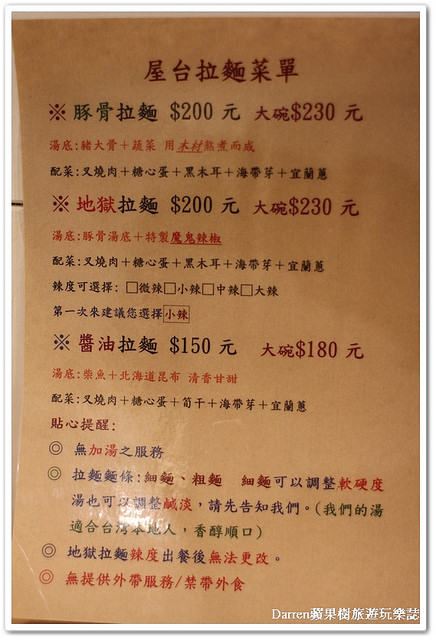 屋台拉麵菜單
※ 豚骨拉麵 $200 元 大碗$230 元
湯底:豬大骨＋蔬菜 用木材熬煮而成
配菜:叉燒肉＋糖心蛋＋黑木耳＋海帶芽＋宜蘭蔥
※ 地獄拉麵 $200 元 大碗$230 元
湯底:豚骨湯底＋特製魔鬼辣椒
配菜:叉燒肉＋糖心蛋＋黑木耳＋海帶芽＋宜蘭蔥
辣度可選擇: □微辣□小辣□中辣□大辣
第一次來建議您選擇小辣
※ 醬油拉麵 $150 元 大碗$180 元
湯底:柴魚＋北海道昆布 清香甘甜
配菜:叉燒肉＋糖心蛋＋筍干＋海帶芽＋宜蘭蔥
貼心提醒:
◎ 無加湯之服務
◎ 拉麵麵條:細麵、粗麵 細麵可以調整軟硬度
湯也可以調整鹹淡，請先告知我們。(我們的湯
適合台灣本地人，香醇順口)
◎ 地獄拉麵辣度出餐後無法更改。
◎ 無提供外帶服務/禁帶外食
Darren蘋果樹旅遊玩樂誌